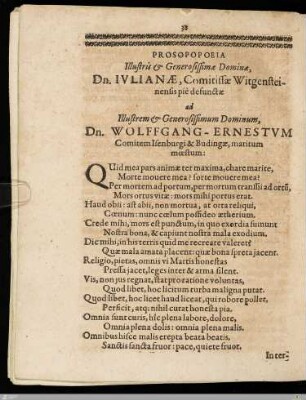 38
PROSOPOPOEIA
Illustris & Generosissimæ Dominæ,
Dn. IVLIANÆ, Comitissæ Witgenstei-
nensis piè defunctæ
ad
Illustrem & Generosissimum Dominum,
Dn. WOLFFGANG-ERNESTVM
Comitem Isenburgi & Budingæ, maritum
mœstum:
QUid mea pars animæ ter maxima, chare marite,
Morte mouere mea? forte mouere mea?
Per mortem ad portum, per mortum transsii ad ortũ,
Mors ortus vitæ: mors mihi portus erat.
Haud obii: ast abii, non mortua, at orta reliqui,
Cœnum: nunc cœlum possideo ætherium.
Crede mihi, mors est punctum, in quo exordia sumunt
Nostra bona, & capiunt nostra mala exodium.
Dic mihi, in his terris quid me recreare valeret?
Quæ mala amata placent: quæ bona spreta jacent.
Religio, pietas, omnis vi Mattis honestas
Pressa jacet, leges inter & arma silent.
Vis, non jus regnat, stat pro ratione voluntas,
Quod libet, hoc licitum turba maligna putat.
Quod libet, hoc licet haud liceat, qui robore pollet,
Perficit, atq; nihil curat honesta pia.
Omnia sunt curis, hîc plena labore, dolore,
Omnia plena dolis: omnia plena malis.
Omnibus hisce malis erepta beata beatis.
Sanctis sancta fruor: pace, quiete fruor.
Inter